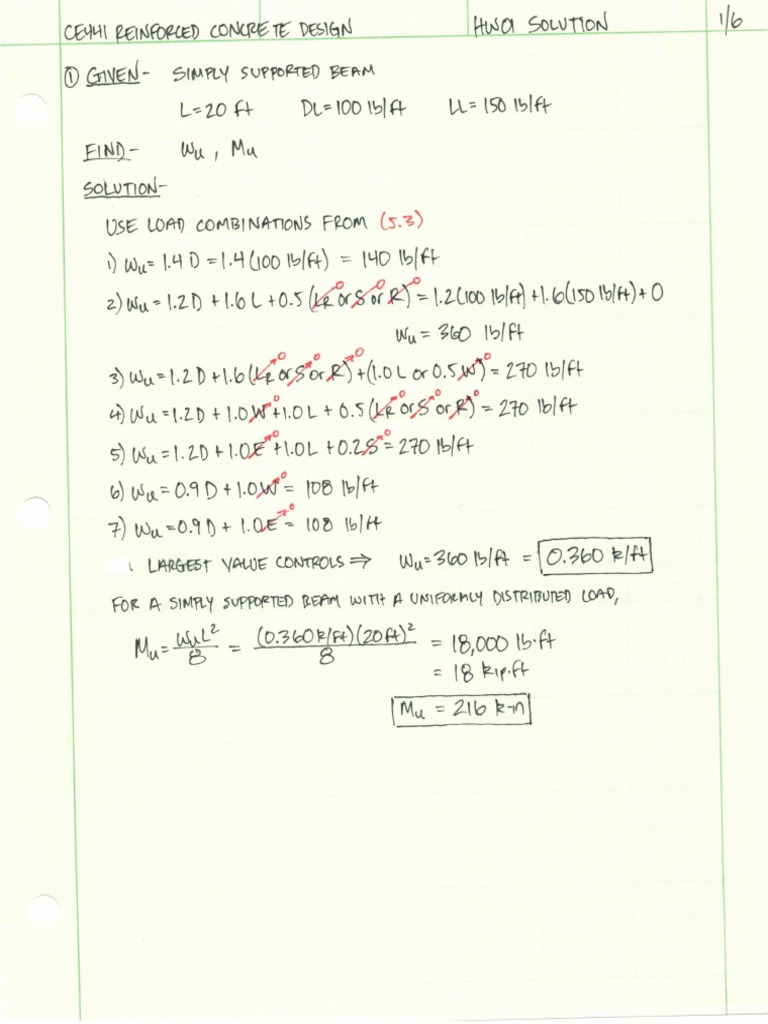 CE441 REINFORCED CONCRETE DESIGN HW01 SOLUTION 1/6
① GIVEN- SIMPLY SUPPORTED BEAM
L=20 ft DL=100 lb/ft LL=150 lb/ft
FIND- Wu, Mu
SOLUTION-
USE LOAD COMBINATIONS FROM (5.3)
1) Wu=1.4D=1.4(100 lb/ft) = 140 lb/ft
2) Wu=1.2D+1.6L+0.5(LR or S or R)→0 =1.2(100 lb/ft)+1.6(150 lb/ft)+0
Wu=360 lb/ft
3) Wu=1.2D+1.6(LR→0 or S→0 or R→0)+(1.0L or 0.5W→0)=270 lb/ft
4) Wu=1.2D+1.0W→0+1.0L+0.5(LR→0 or S→0 or R→0)=270 lb/ft
5) Wu=1.2D+1.0E→0+1.0L+0.2S→0=270 lb/ft
6) Wu=0.9D+1.0W→0= 108 lb/ft
7) Wu=0.9D+1.0E→0= 108 lb/ft
LARGEST VALUE CONTROLS ⇒ Wu=360 lb/ft = 0.360 k/ft
FOR A SIMPLY SUPPORTED BEAM WITH A UNIFORMLY DISTRIBUTED LOAD,
Mu= WuL²/8 = (0.360k/ft)(20ft)²/8 = 18,000 lb·ft
= 18 kip·ft
Mu = 216 k-in